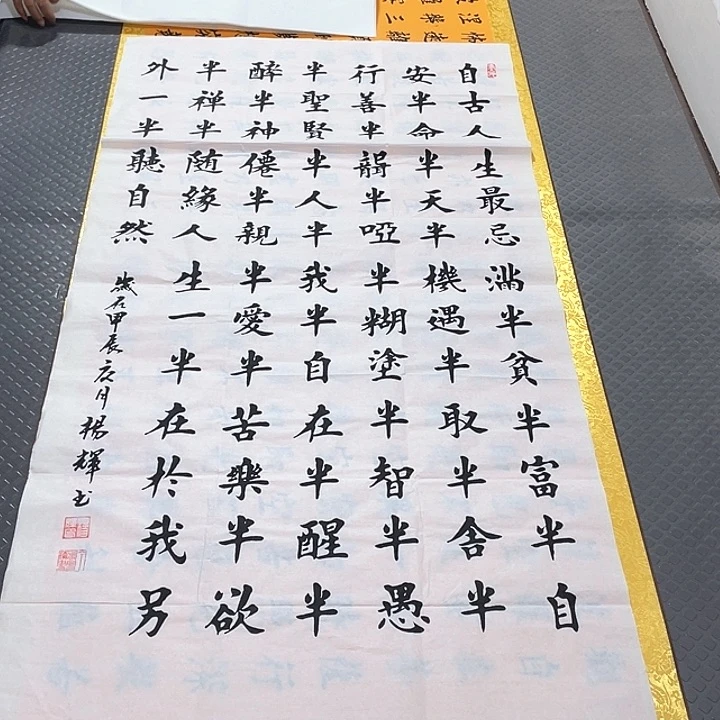 自古人生最忌滿半貧半富半自
安半命半天半機遇半取半舍半
行善半聾半啞半糊塗半智半愚
半聖賢半人半我半自在半醒半
醉半神僊半親半愛半苦樂半欲
半禅半随緣人生一半在於我另
外一半聽自然
歲在甲辰夏月楊輝书